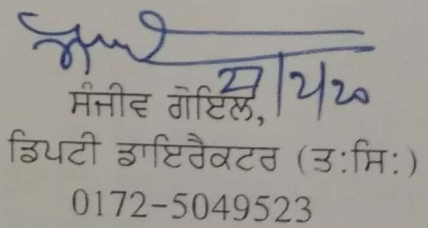 ਸੰਜੀਵ ਗੋਇਲ,
ਡਿਪਟੀ ਡਾਇਰੈਕਟਰ (ਤ:ਸਿ:)
0172-5049523